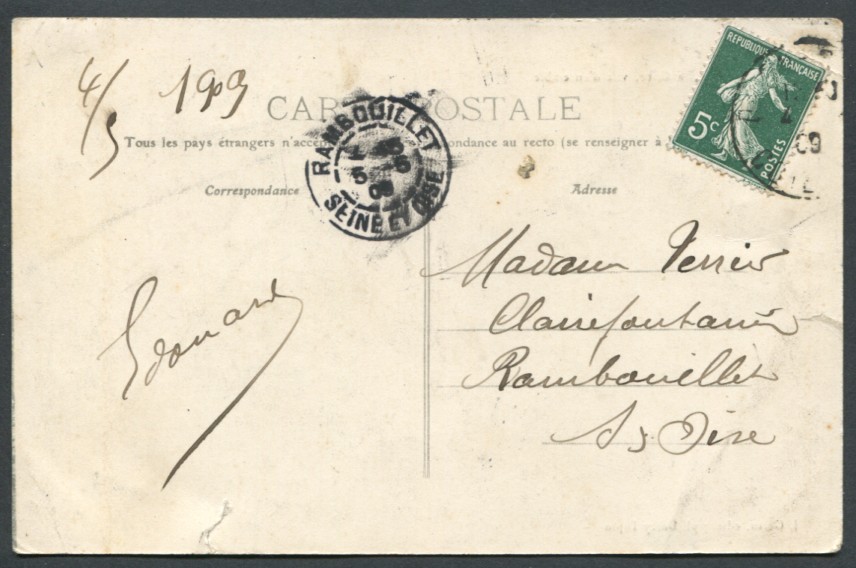 4/5 1909
CARTE POSTALE
Tous les pays étrangers n'accep pondance au recto (se renseigner à
Correspondance
Adresse
RAMBOUILLET
5 -5
09
SEINE ET OISE
REPUBLIQUE FRANÇAISE
5c
POSTES
09
Edouard
Madame
Clairefontaine
Rambouillet
S & Oise